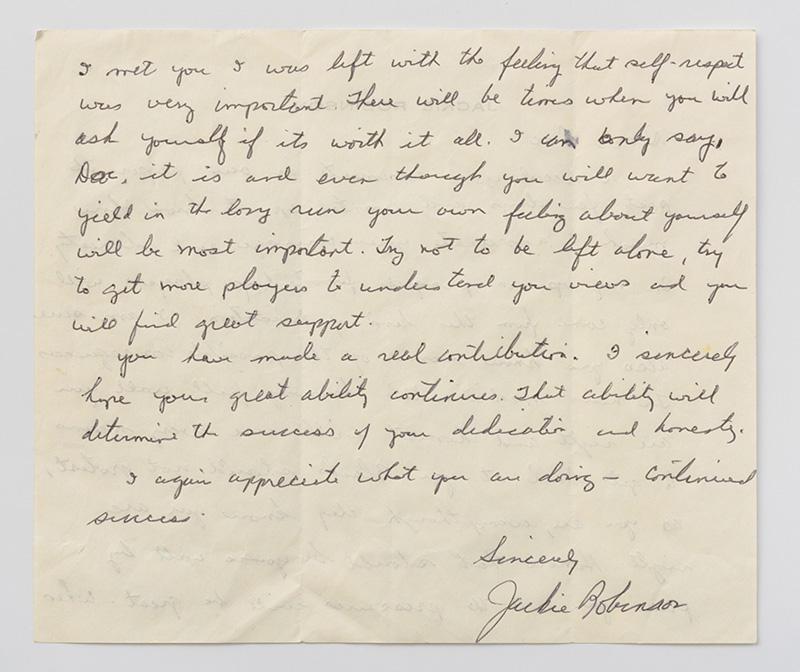 I met you I was left with the feeling that self-respect
was very important. There will be times when you will
ask yourself if its worth it all. I can only say,
Dick, it is and even though you will want to
yield in the long run your own feeling about yourself
will be most important. Try not to be left alone, try
to get more players to understand your views and you
will find great support.
You have made a real contribution. I sincerely
hope your great ability continues. That ability will
determine the success of your dedication and honesty.
I again appreciate what you are doing - continued
success.
Sincerely
Jackie Robinson